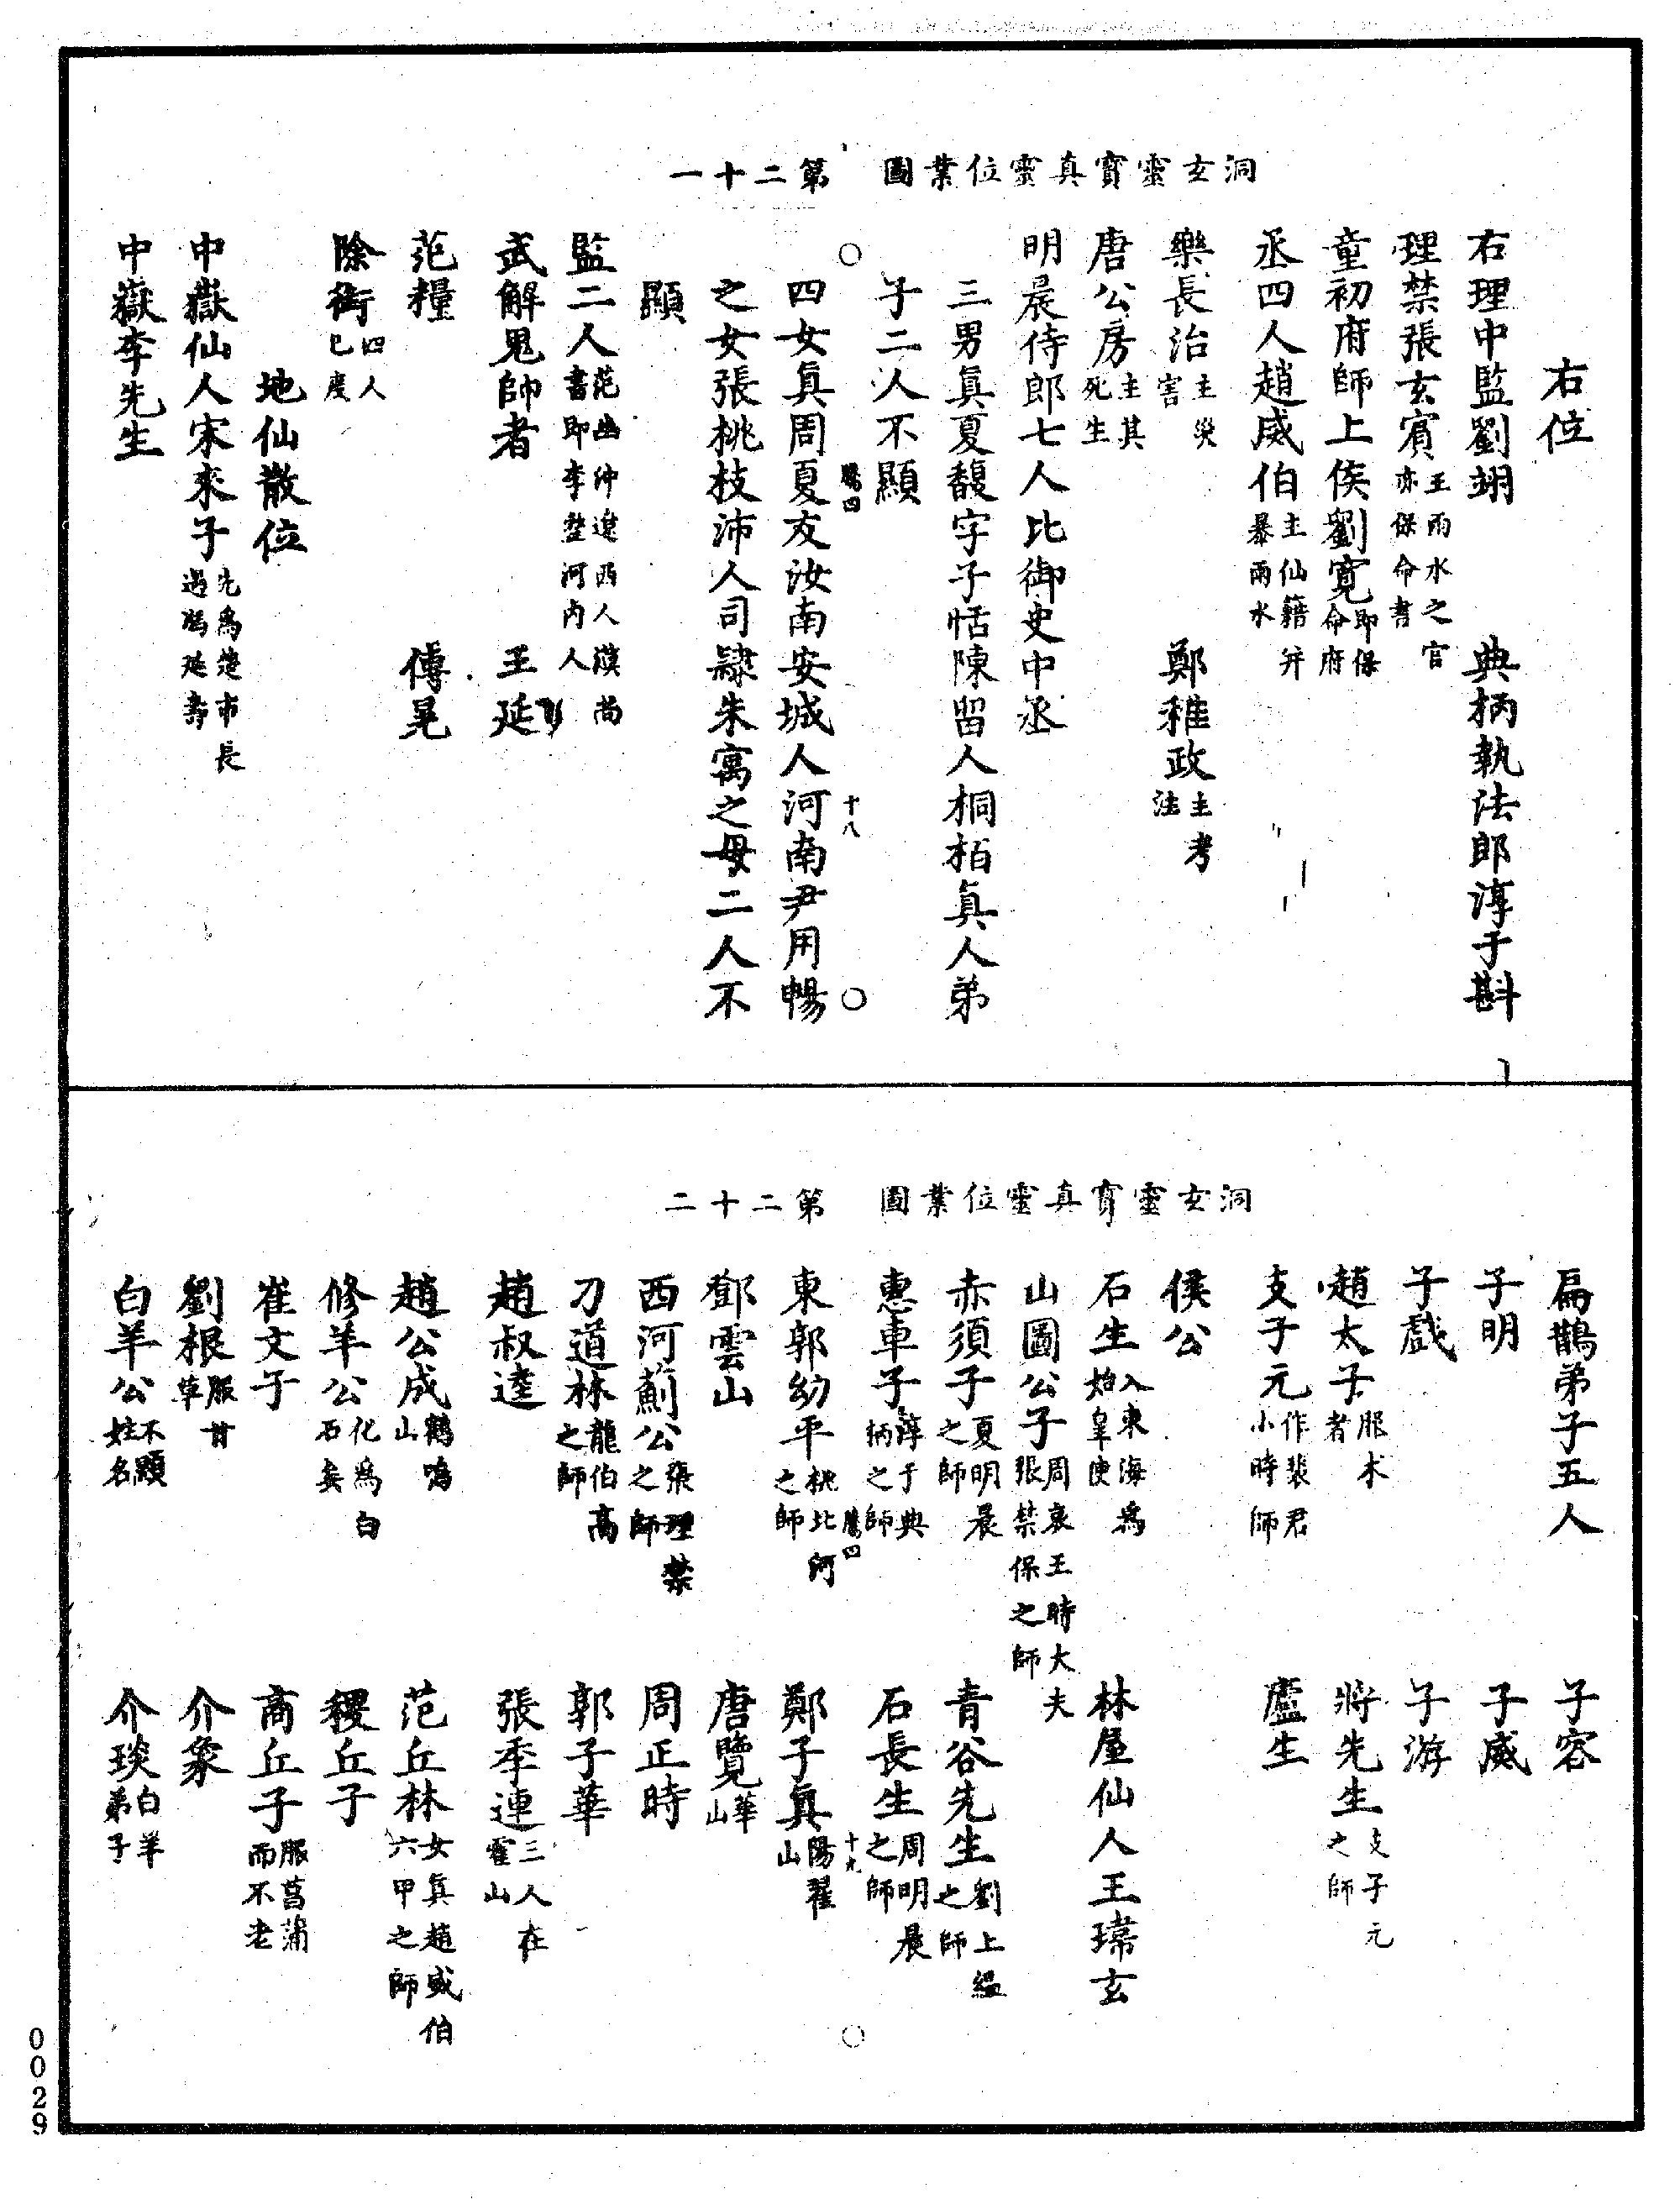 洞玄靈寶真靈位業圖　第二十一
右位
右理中監劉翊　典柄執法郎淳于斟
理禁張玄賓主雨水之官亦保命書
童初府師上侯劉寬即保命府
丞四人趙威伯主仙籍并暴雨水
樂長治主災害　鄭稚政主考法
唐公房主其死生
明晨侍郎七人比御史中丞
三男眞夏馥字子恬陳留人桐柏眞人弟
子二人不顯
騰四　十八
四女眞周夏友汝南安城人河南尹用暢
之女張桃枝沛人司隸朱寓之母二人不
顯
監二人范幽沖遼西人漢尚書即李整河內人
武解鬼帥者　王延
范糧　傅晃
除衛四人已度
地仙散位
中嶽仙人宋來子先爲楚市長遇馮延壽
中嶽李先生
洞玄靈寶真靈位業圖　第二十二
扁鵲弟子五人　子容
子明　子威
子戲　子游
趙太子服朮者　將先生支子元之師
支子元作裴君小時師　盧生
侯公
石生入東海爲始皇使　林屋仙人王瑋玄
山圖公子周哀王時大夫張禁保之師
赤須子夏明晨之師　青谷先生劉上緼之師
惠車子淳于典柄之師　石長生周明晨之師
騰四　十九
東郭幼平桃北河之師　鄭子眞陽翟山
鄧雲山　唐覽華山
西河薊公張理禁之師　周正時
刀道林龍伯高之師　郭子華
趙叔達　張季連三人在霍山
趙公成鶴鳴山　范丘林女眞趙威伯六甲之師
修羊公化爲白石矣　稷丘子
崔文子　商丘子服菖蒲而不老
劉根服甘草　介象
白羊公不顯姓名　介琰白羊弟子
0029